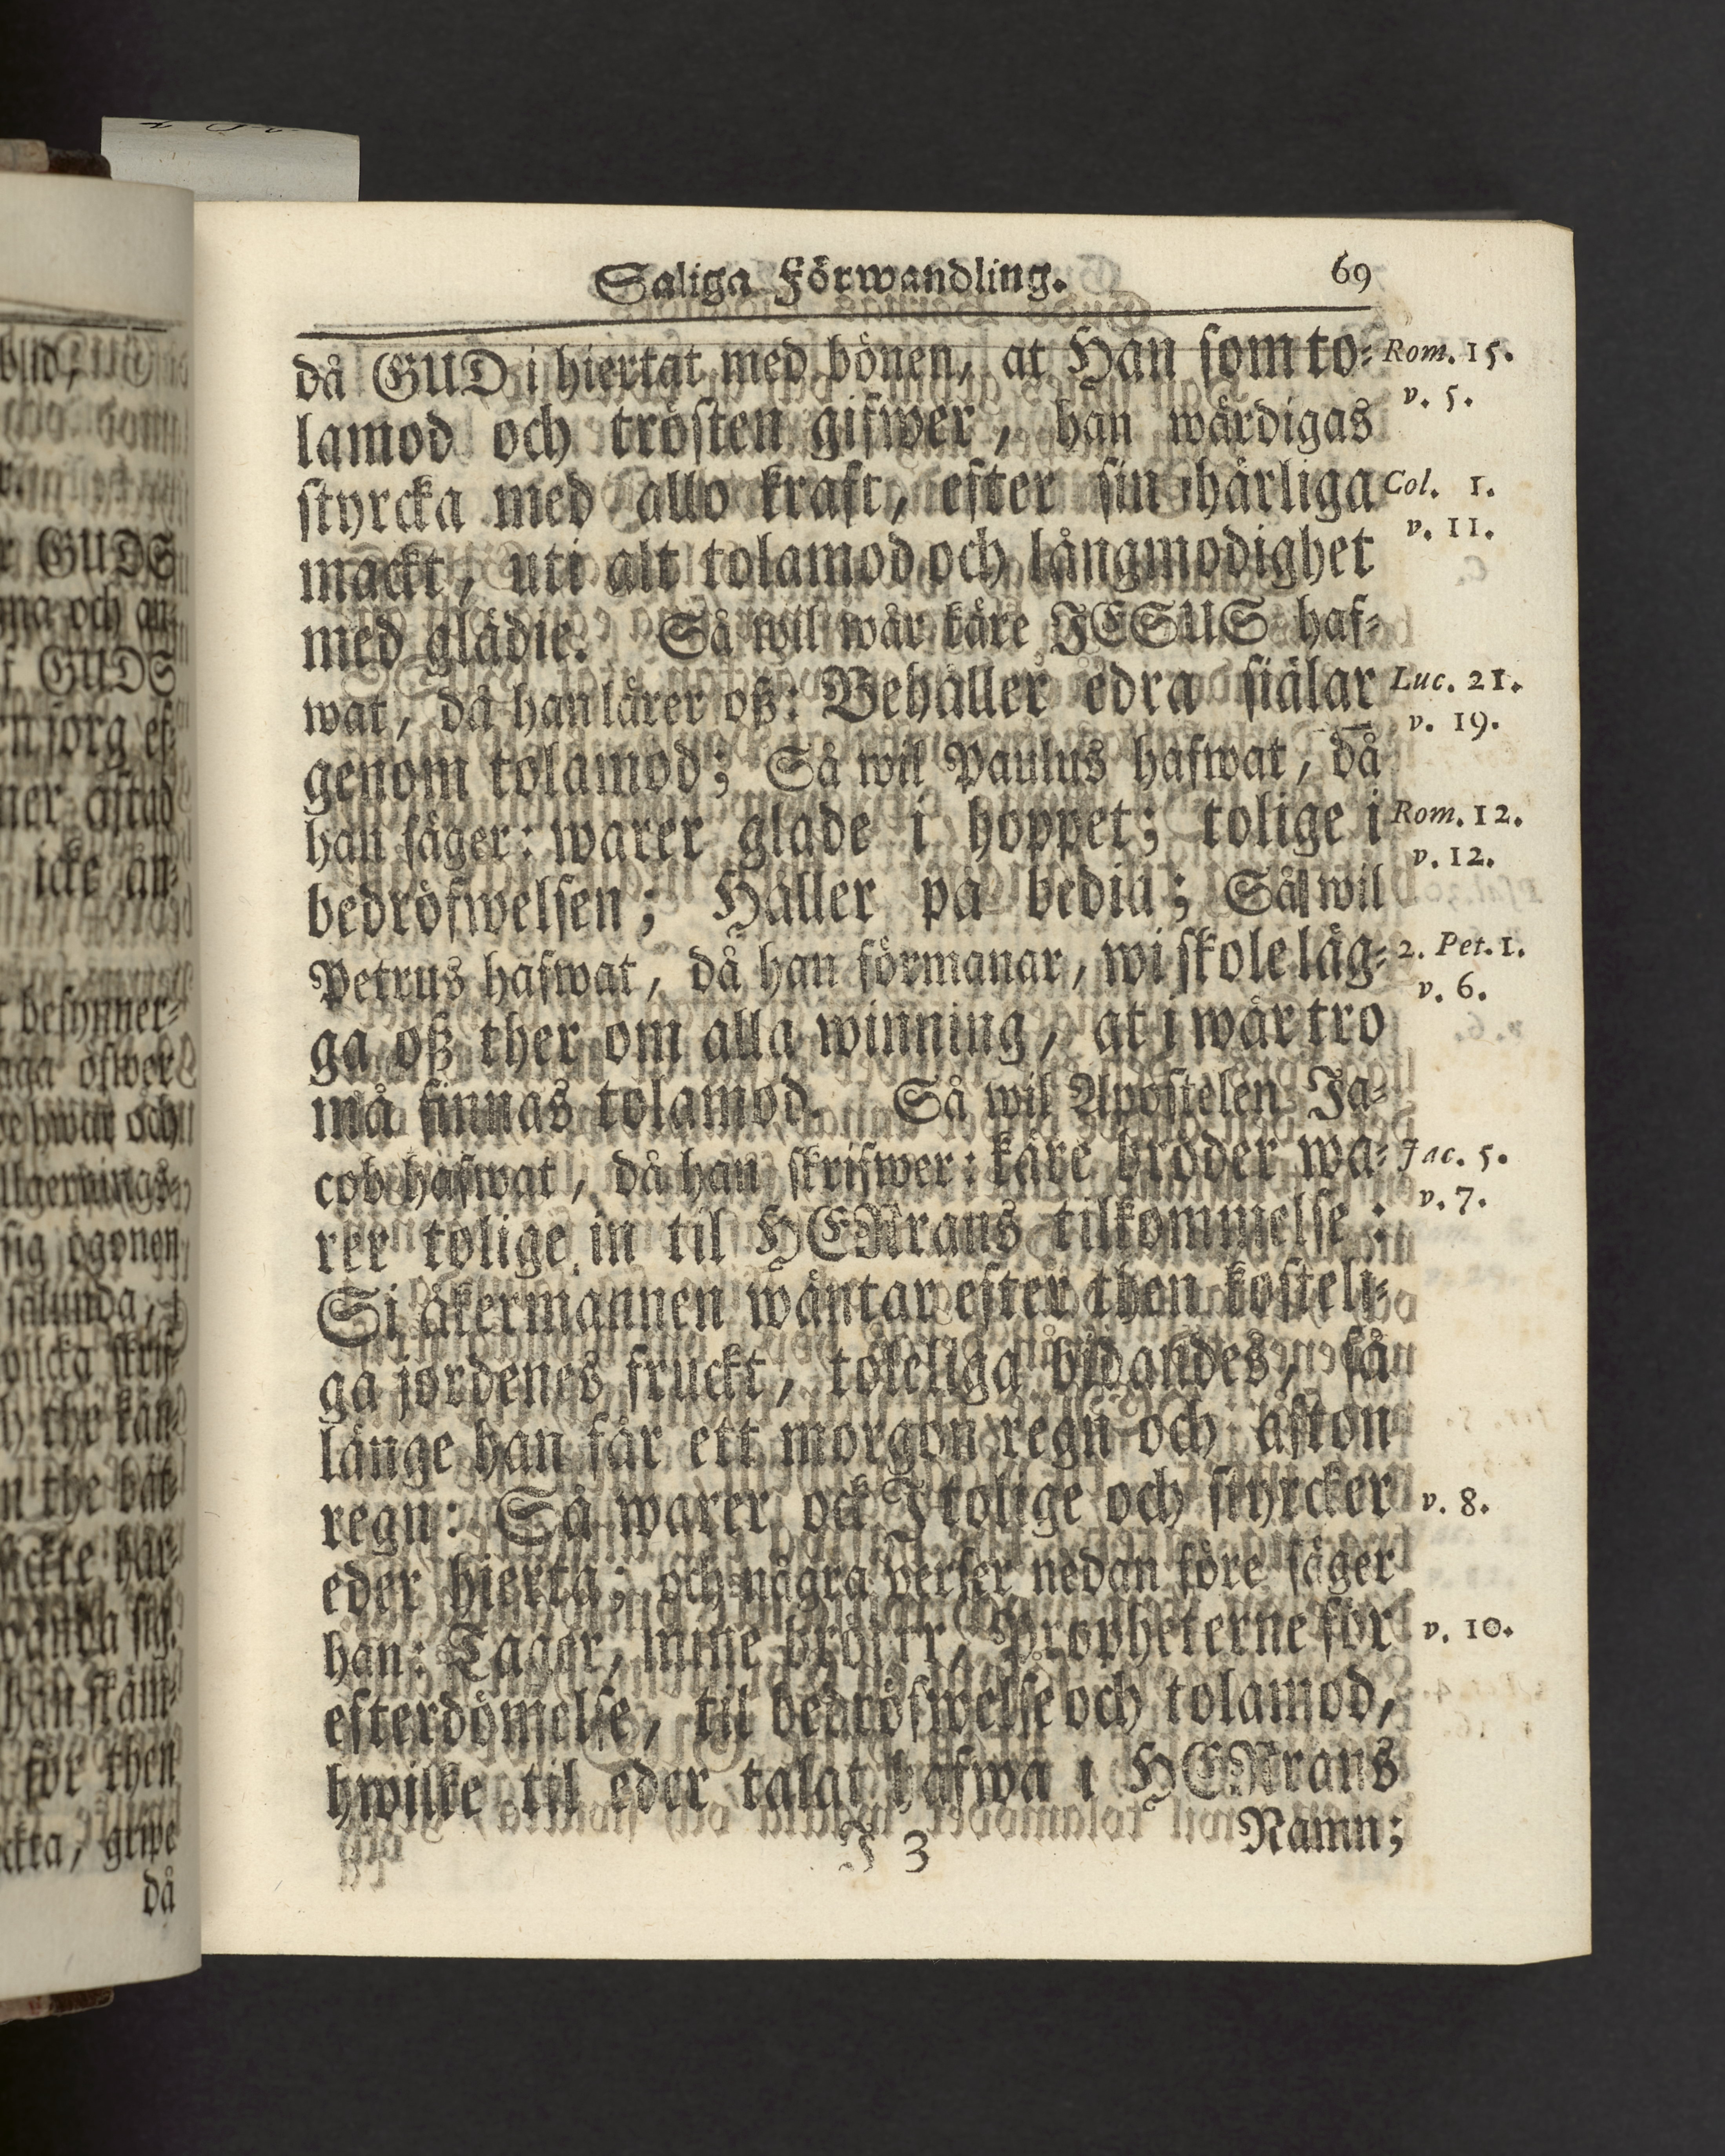 Saliga Förwandling. 69
då GUD i hiertat med bönen, at Han som to- Rom. 15.
v. 5.
lamod och trösten gifwer, han wärdigas
styrcka med allo kraft, efter sin härliga Col. 1.
v. 11.
mackt, uti alt tolamod och långmodighet
med glädie. Så wil wår käre JESUS haf-
wat, då han lärer oß: Behåller edra siälar Luc. 21.
v. 19.
genom tolamod; Så wil Paulus hafwat, då
han säger: warer glade i hoppet; tolige i Rom. 12.
v. 12.
bedröfwelsen; Håller på bedia; Så wil
Petrus hafwat, då han förmanar, wi skole läg- 2. Pet. 1.
v. 6.
ga oß ther om alla winning, at i wår tro
må finnas tolamod. Så wil Apostelen Ja-
cob hafwat, då han skrifwer: käre bröder wa- Jac. 5.
v. 7.
rer tolige in til HERrans tilkommelse:
Si åkermannen wäntar efter then kosteli-
ga jordenes fruckt, toleliga bidandes, så
länge han får ett morgon regn och afton
regn: Så warer ock I tolige och styrcker v. 8.
eder hierta; och några verser nedan före säger
han: Tager, mine bröder, Propheterne för v. 10.
efterdömelse, til bedröfwelse och tolamod,
hwilke til eder talat hafwa i HERrans
I 3 Namn;
r GUDS
f GUDS
icke än-
besynner-
för then
då